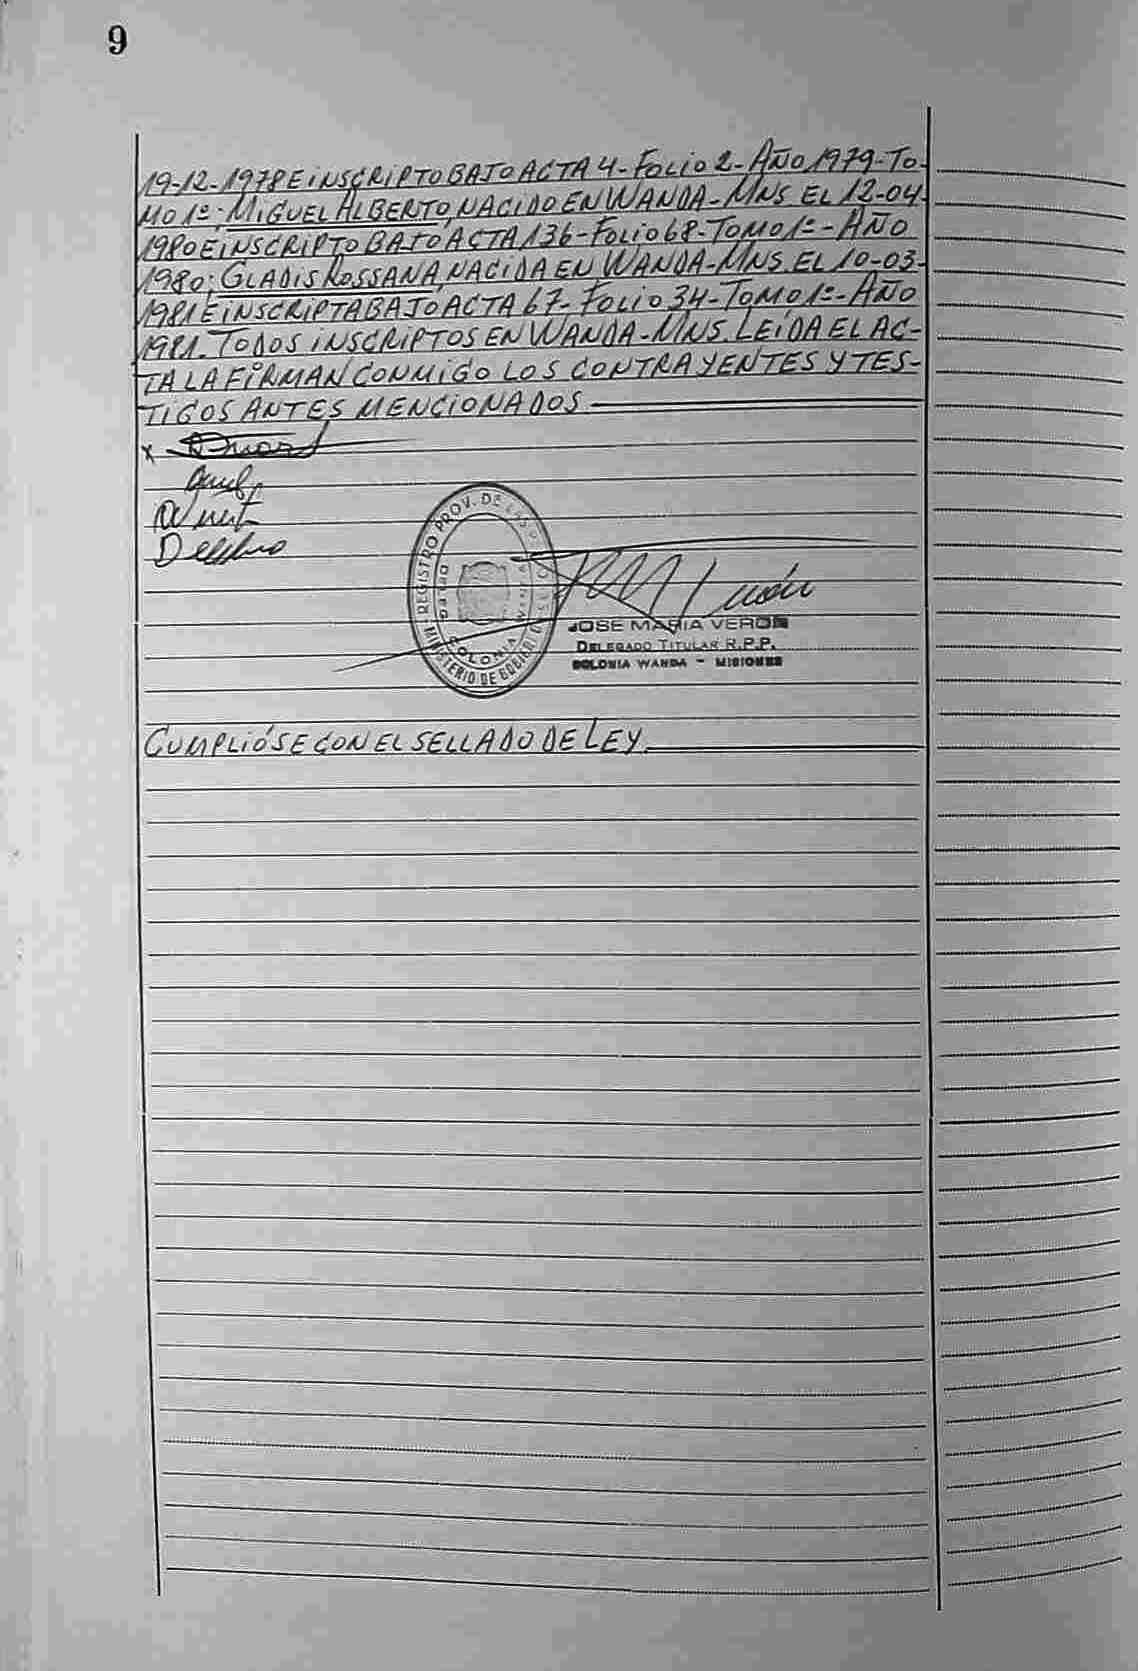 9
19-12-1978 E iNSCRiPTO BAJO ACTA 4-FOLiO 2-AÑO 1979-TO-
MO 1º; MiGUEL ALBERTO, NACIDO EN WANDA-MNS. EL 12-04-
1980 E iNSCRIPTO BAJO ACTA 136-FOLIO 68-TOMO 1º-AÑO
1980; GLADiS ROSSANA, NACiDA EN WANDA-MNS. EL 10-03-
1981 E iNSCRiPTA BAJO ACTA 67-FOLIO 34-TOMO 1º-AÑO
1981. TODOS iNSCRiPTOS EN WANDA-MNS. LEíDA EL AC-
TA LA FiRMAN CONMiGO LOS CONTRAYENTES Y TES-
TIGOS ANTES MENCIONADOS
x
REGISTRO PROV. DE LAS
COLONIA WANDA
MINISTERIO DE GOBIERNO
JOSE MARIA VERON
DELEGADO TITULAR R.P.P.
COLONIA WANDA - MISIONES
CUMPLIÓSE CON EL SELLADO DE LEY.